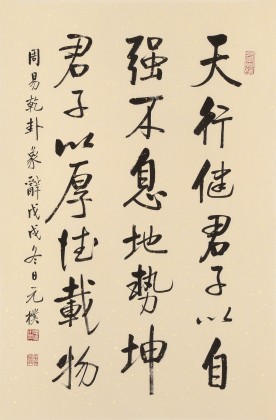 天行健君子以自
强不息地勢坤
君子以厚德載物
周易乾卦象辭戊戌冬日元樸